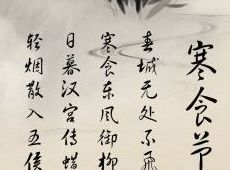 寒食节
春城无处不飛
寒食东风御柳
日暮汉宫传蜡
轻烟散入五侯